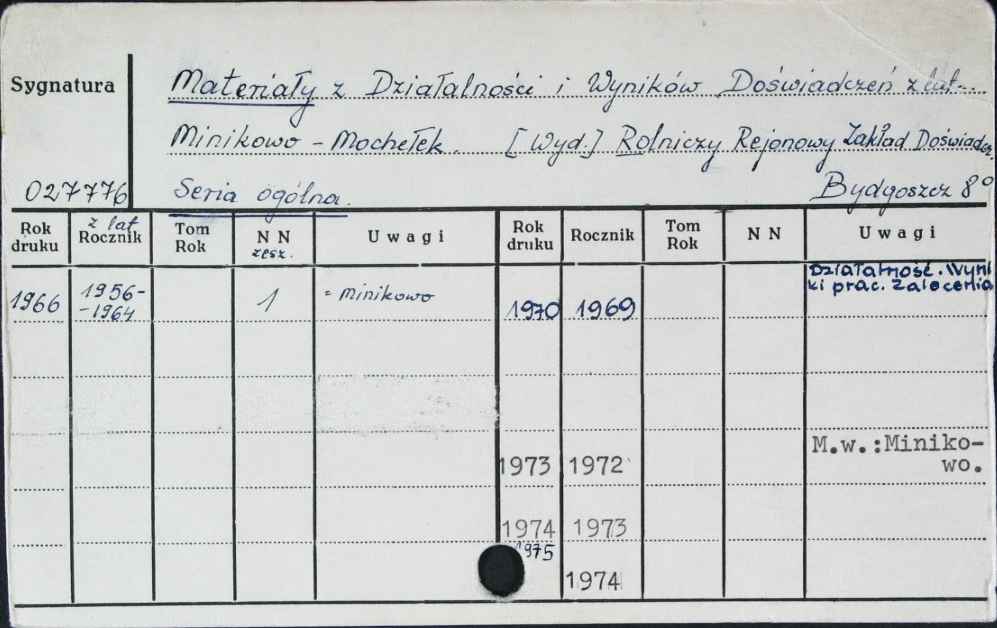 Sygnatura
Materiały z Działalności i Wyników Doświadczeń z lat...
Minikowo - Mochełek. [Wyd.] Rolniczy Rejonowy Zakład Doświadcz.
027776 Seria ogólna. Bydgoszcz 8°
Rok druku z lat Rocznik Tom Rok NN zesz. Uwagi Rok druku Rocznik Tom Rok NN Uwagi
1966 1956-
-1964 1 = Minikowo 1970 1969 Działalność. Wyni
ki prac. Zalecenia
1973 1972 M.w.:Miniko-
wo.
1974 1973
1975
1974